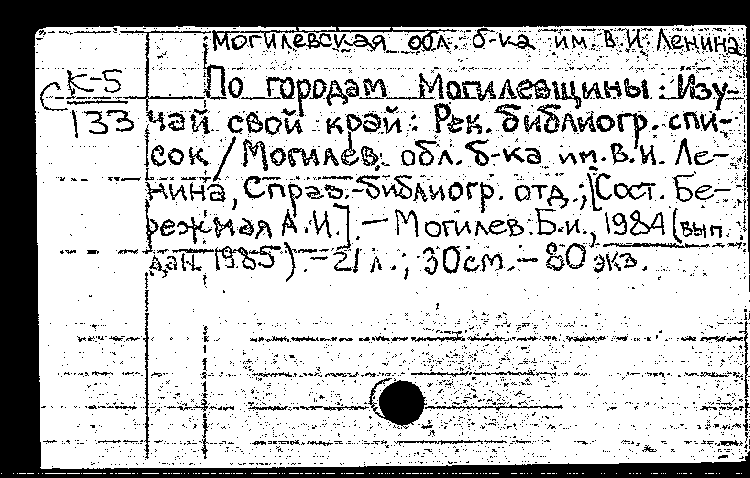 Могилевская обл. б-ка им. В.И. Ленина
С К-5
133
По городам Могилевщины: Изу-
чай свой край: Рек. библиогр. спи-
сок / Могилев. обл. б-ка им. В.И. Ле-
нина, Справ.-библиогр. отд.; [Сост. Бе-
режная А.И.]. – Могилев: Б.и., 1984 (вып.
дан. 1985). – 21 л.; 30 см. – 80 экз.